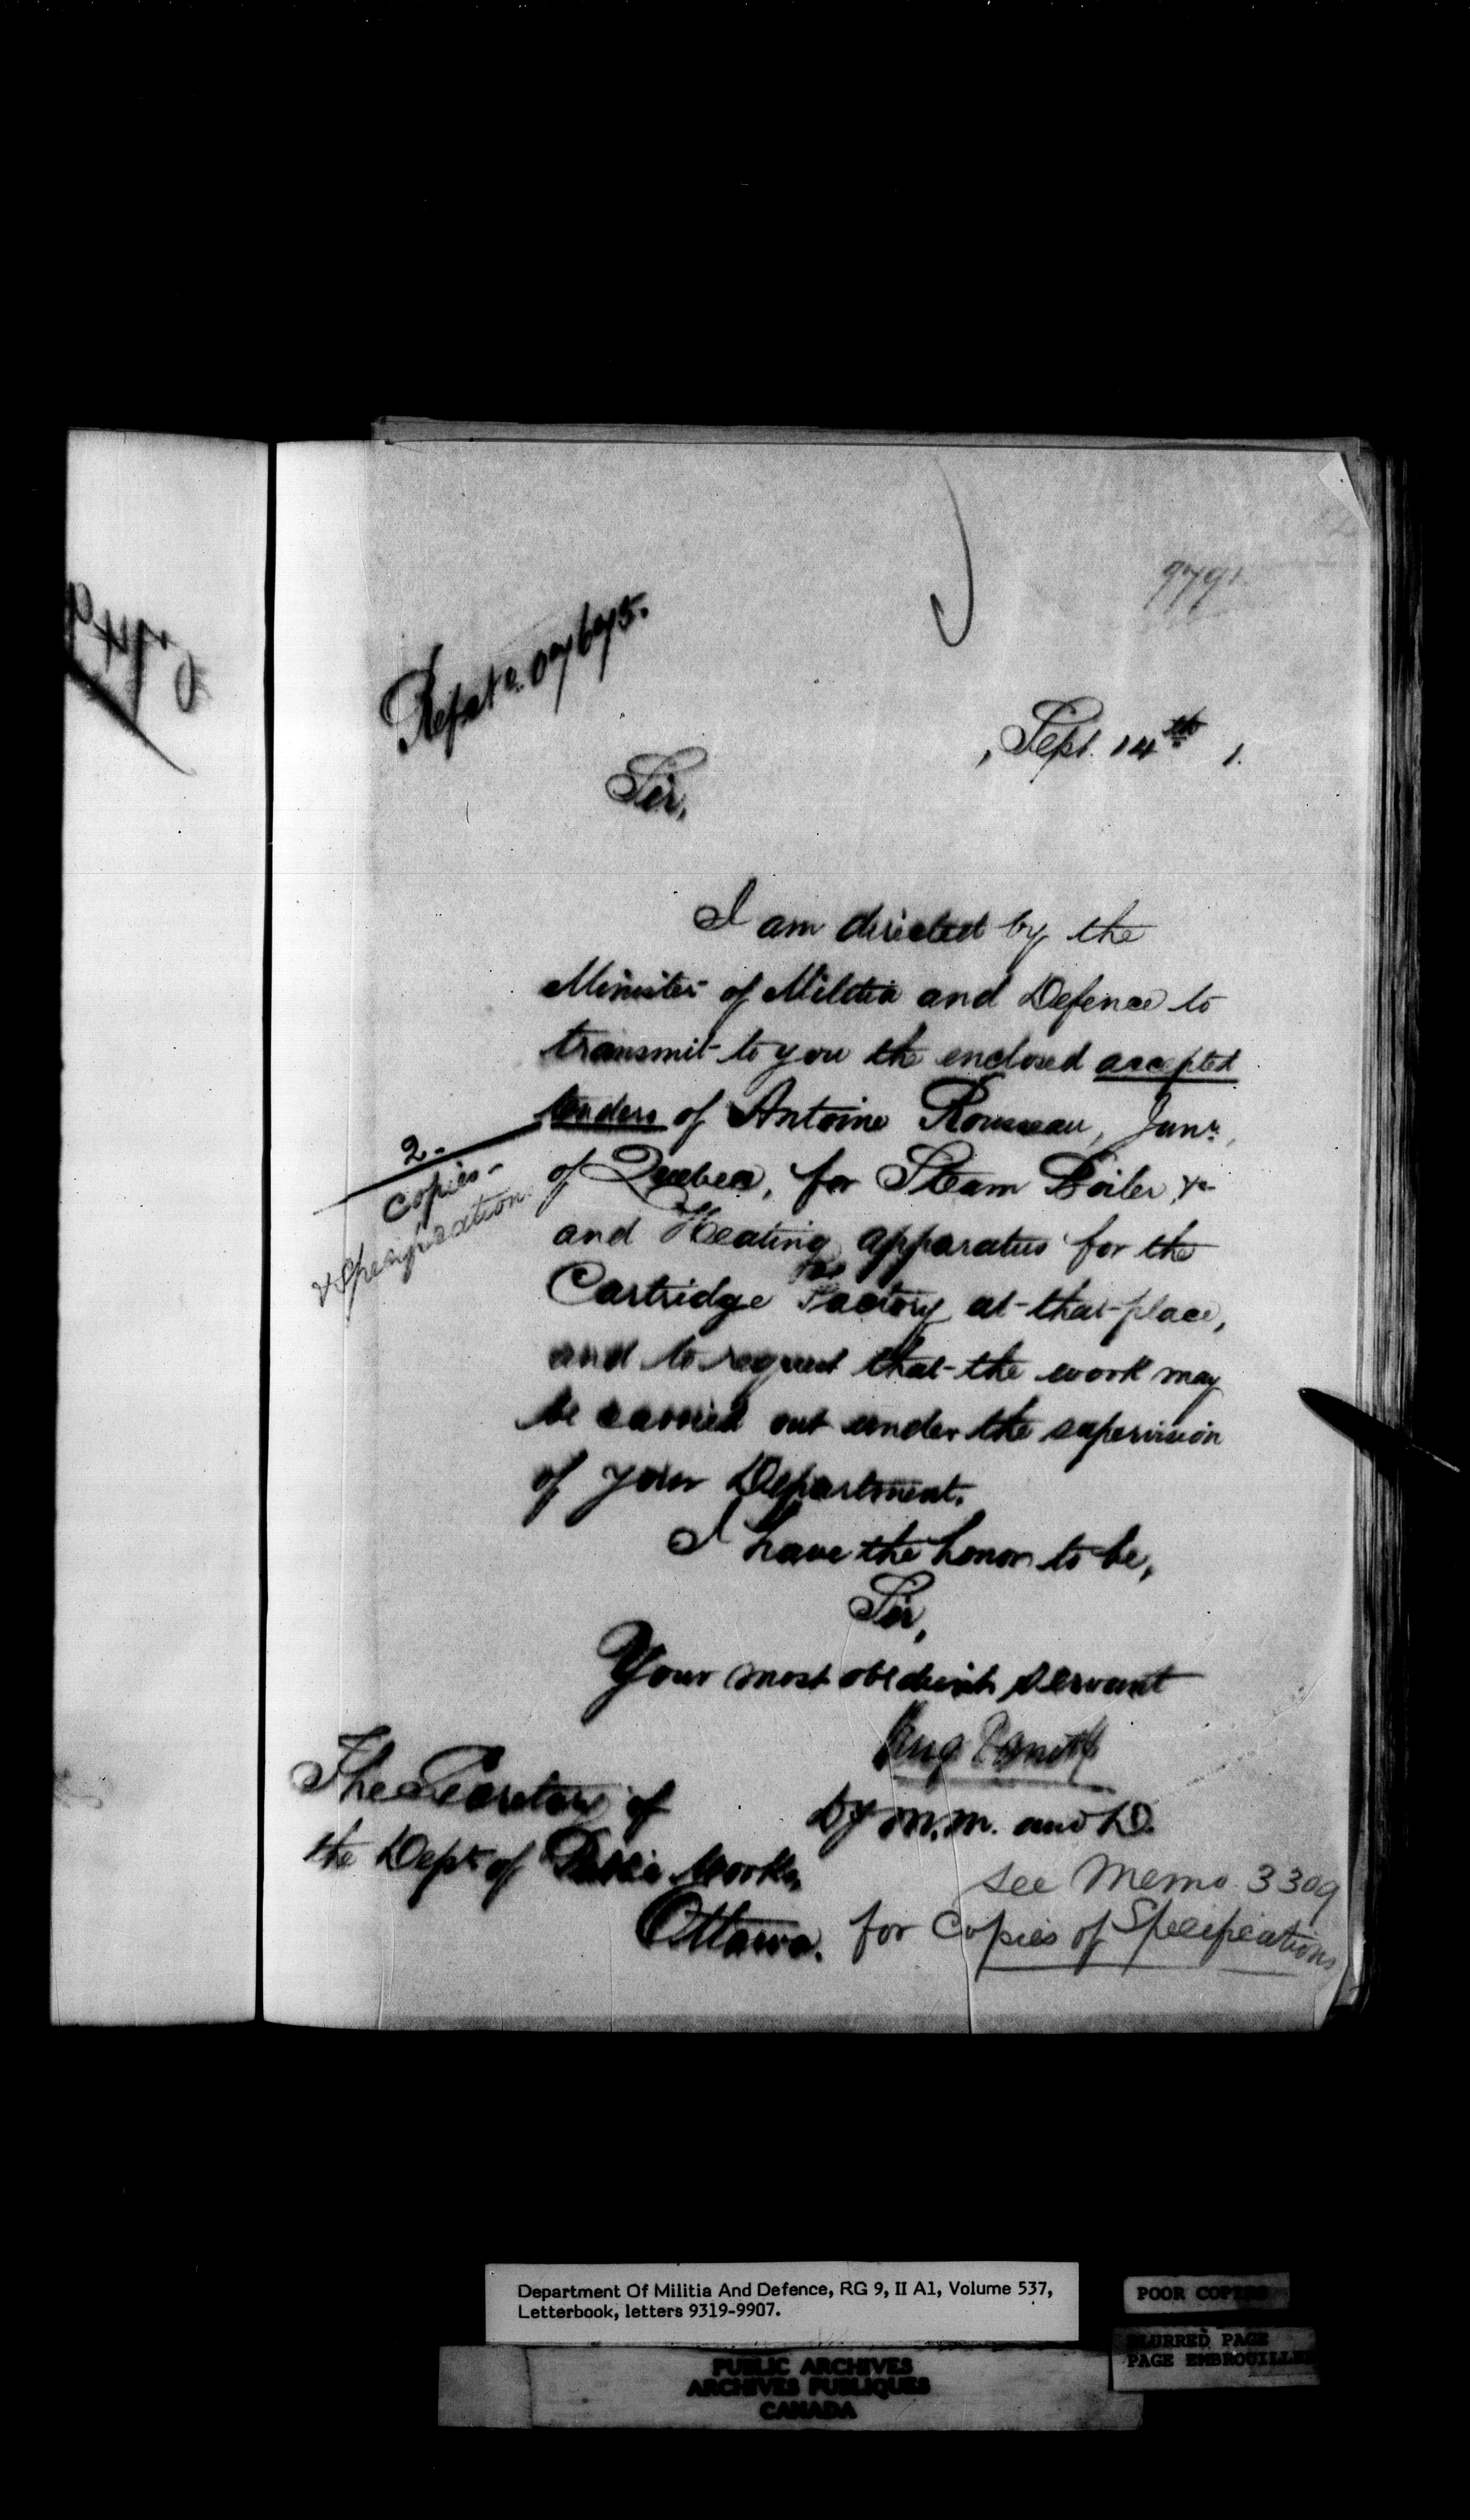 9791
Sept. 14th 1.
Sir,
I am directed by the
Minister of Militia and Defence to
transmit to you the enclosed accepted
tenders of Antoine Rousseau, Junr,
2.
copies-
& Specifications
of Quebec, for Steam Boiler, &c
and Heating apparatus for the
Cartridge Factory at that place,
and to request that the work may
be carried out under the supervision
of your Department.
I have the honor to be,
Sir,
Your most obedient servant
Panet
D of M. M. and D.
The Secretary of
the Dept. of Public Works,
Ottawa.
see Memo 3309
for Copies of Specifications
Department Of Militia And Defence, RG 9, II A1, Volume 537,
Letterbook, letters 9319-9907.
POOR COPIES
BLURRED PAGE
PAGE EMBROUILLEE
PUBLIC ARCHIVES
ARCHIVES PUBLIQUES
CANADA